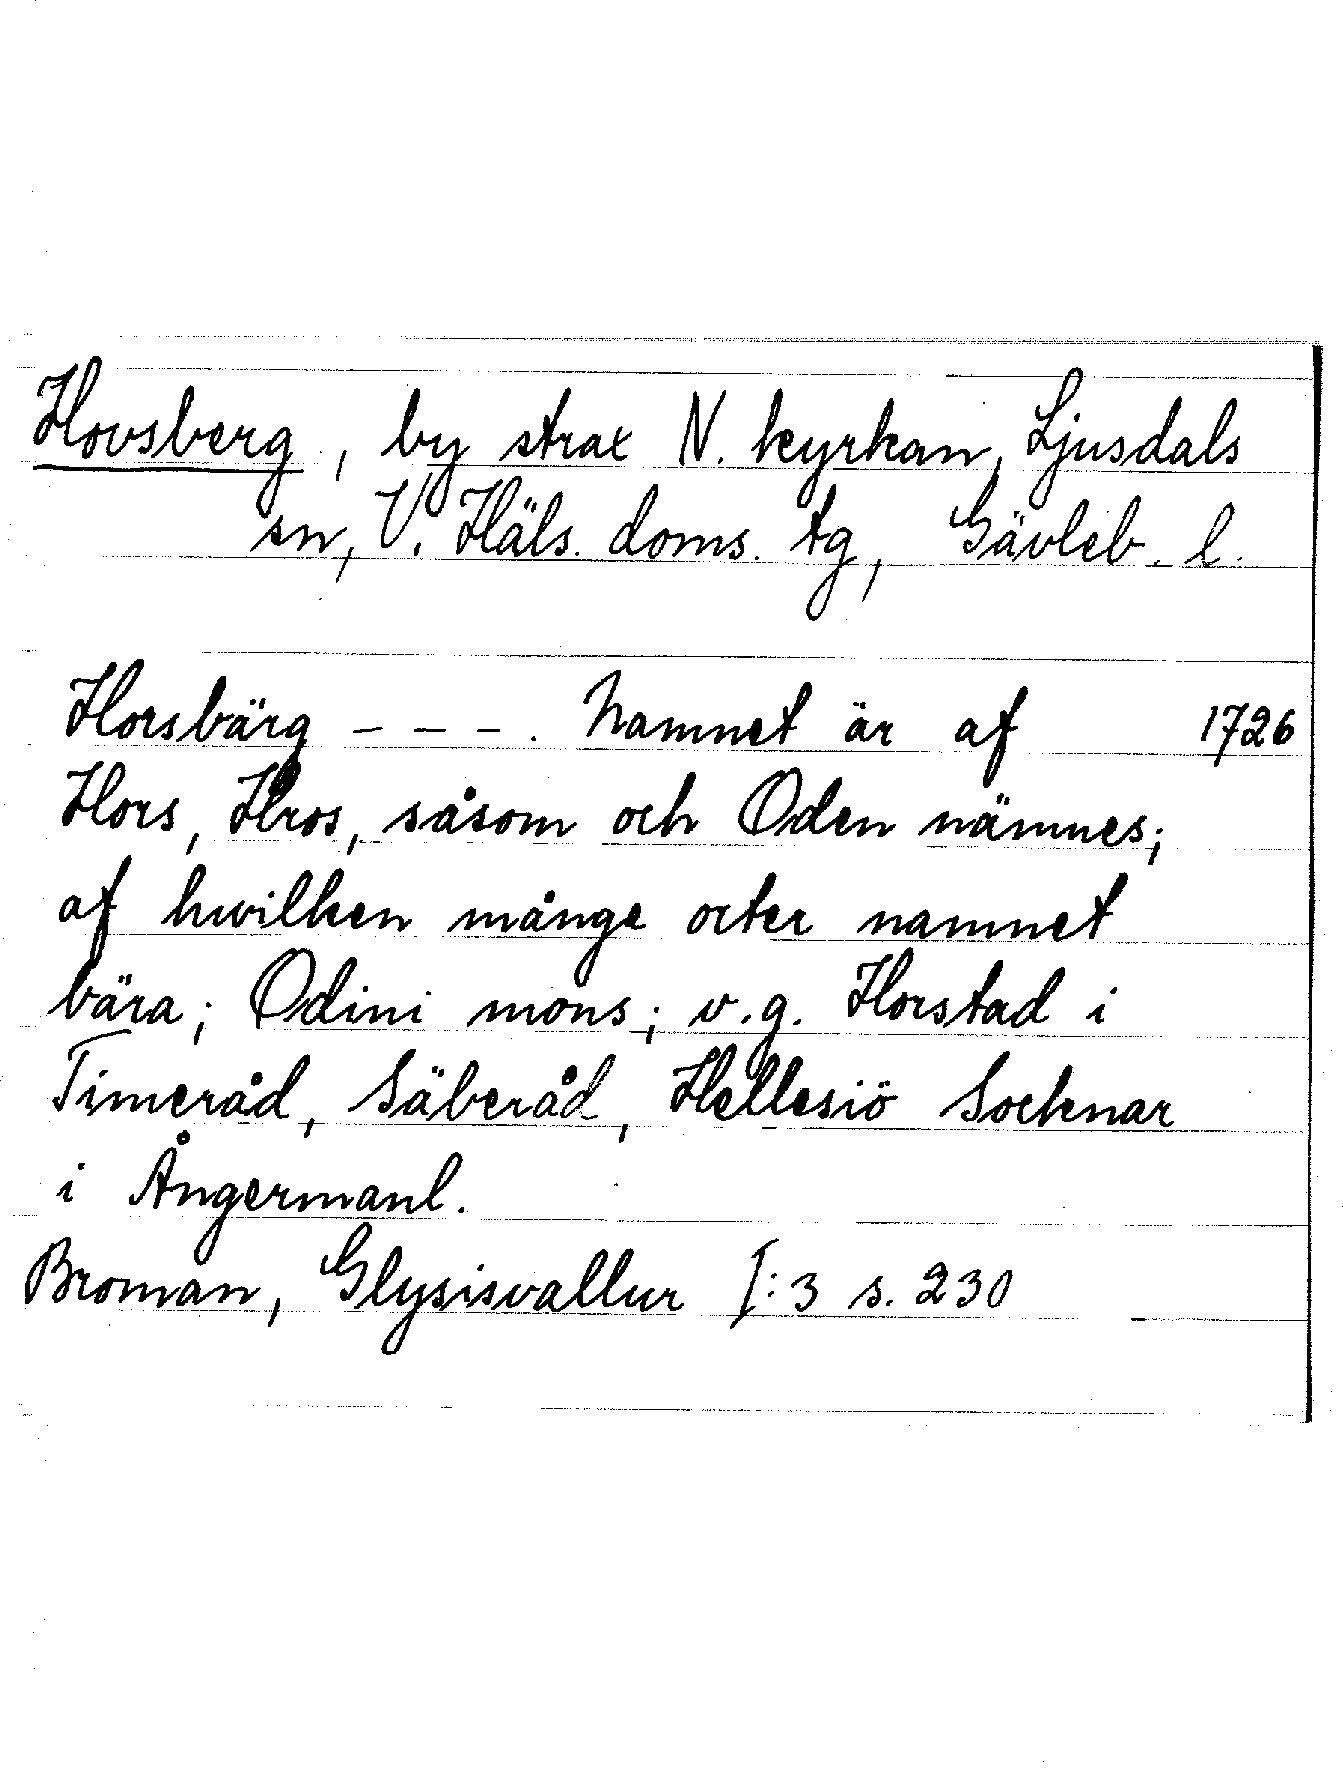 Hovsberg, by strax N. kyrkan, Ljusdals
sn, V. Häls. doms. tg, Gävleb. l.
Horsbärg - - - . Namnet är af 1726
Hors, Hros, såsom och Oden nämnes;
af hwilken månge orter namnet
bära; Odini mons; v.g. Horstad i
Timeråd, Säberåd, Hellesiö Socknar
i Ångermanl.
Broman, Glysisvallur I:3 s. 230